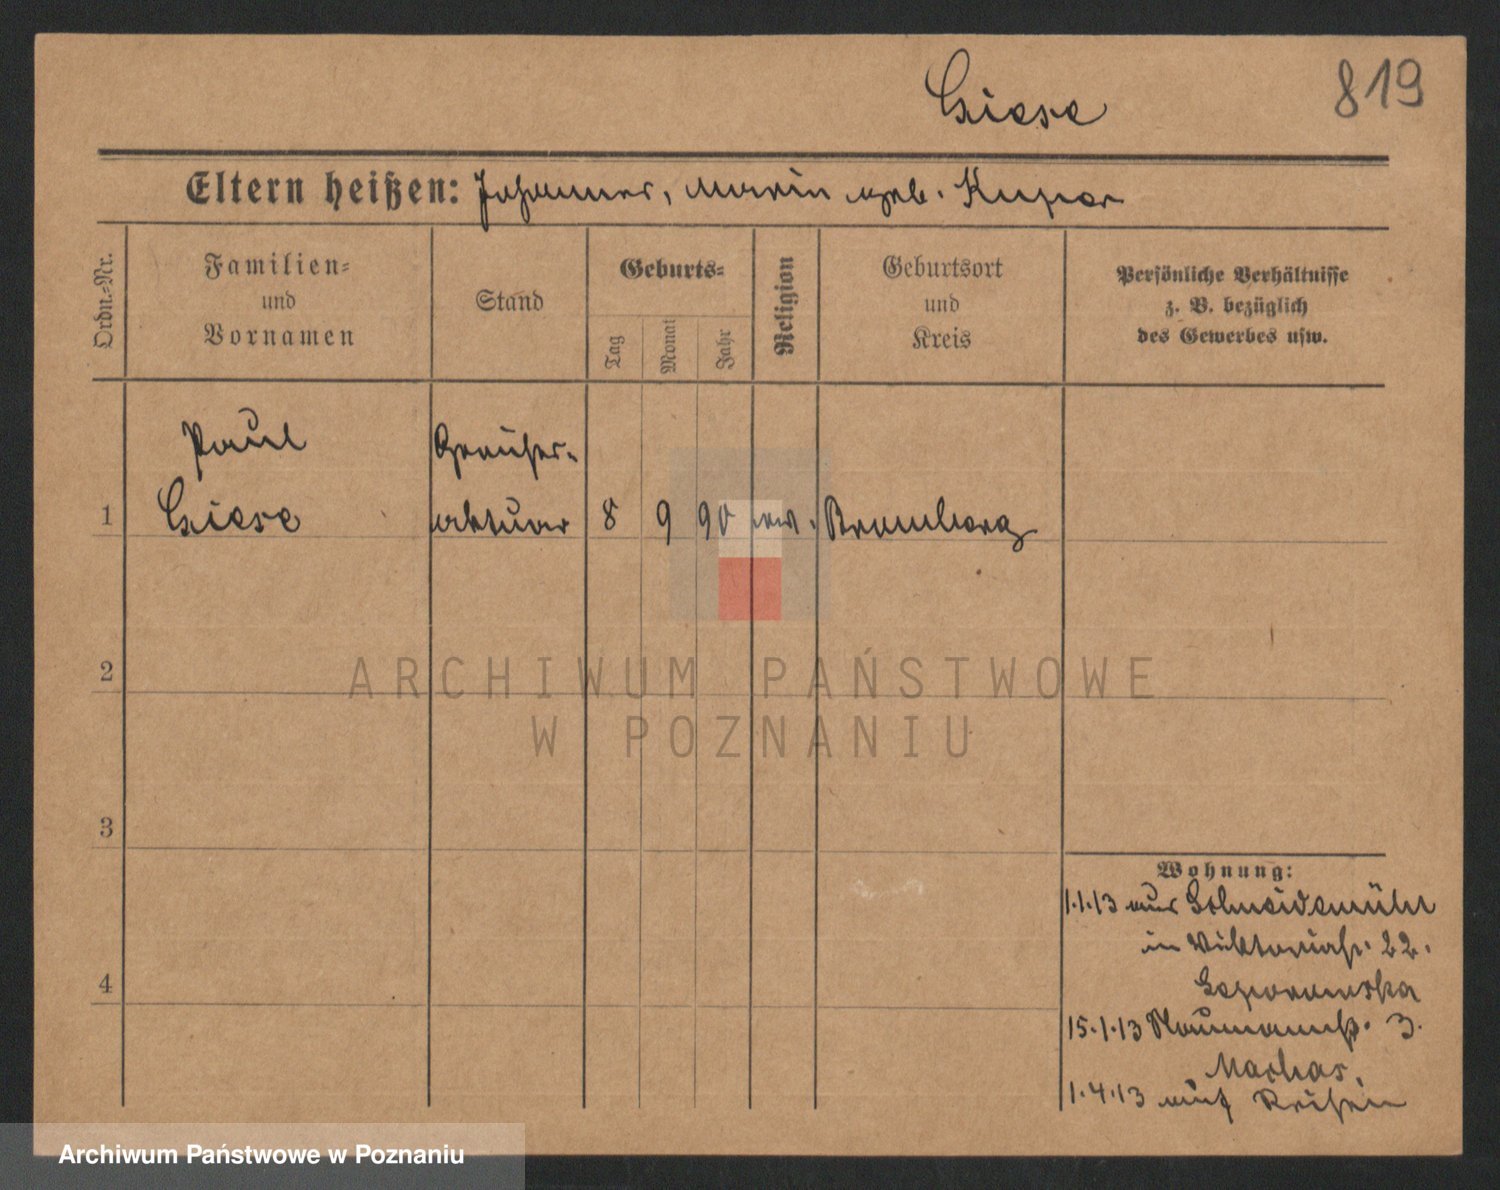 Giese
819
Eltern heißen: Johannes, Maria geb.
Ordn.-Nr.
Familien-
und
Vornamen
Stand
Geburts-
Tag
Monat
Jahr
Religion
Geburtsort
und
Kreis
Persönliche Verhältnisse
z. B. bezüglich
des Gewerbes usw.
Paul
Gerichts-
1 Giese aktuar 8 9 90 ev. Bromberg
2
3
4
Wohnung:
1.1.13 aus Schneidemühl
in Viktoriastr. 22.
15.1.13 Naumannstr. 3.
1.4.13 auf Reisen
ARCHIWUM PAŃSTWOWE
W POZNANIU
Archiwum Państwowe w Poznaniu